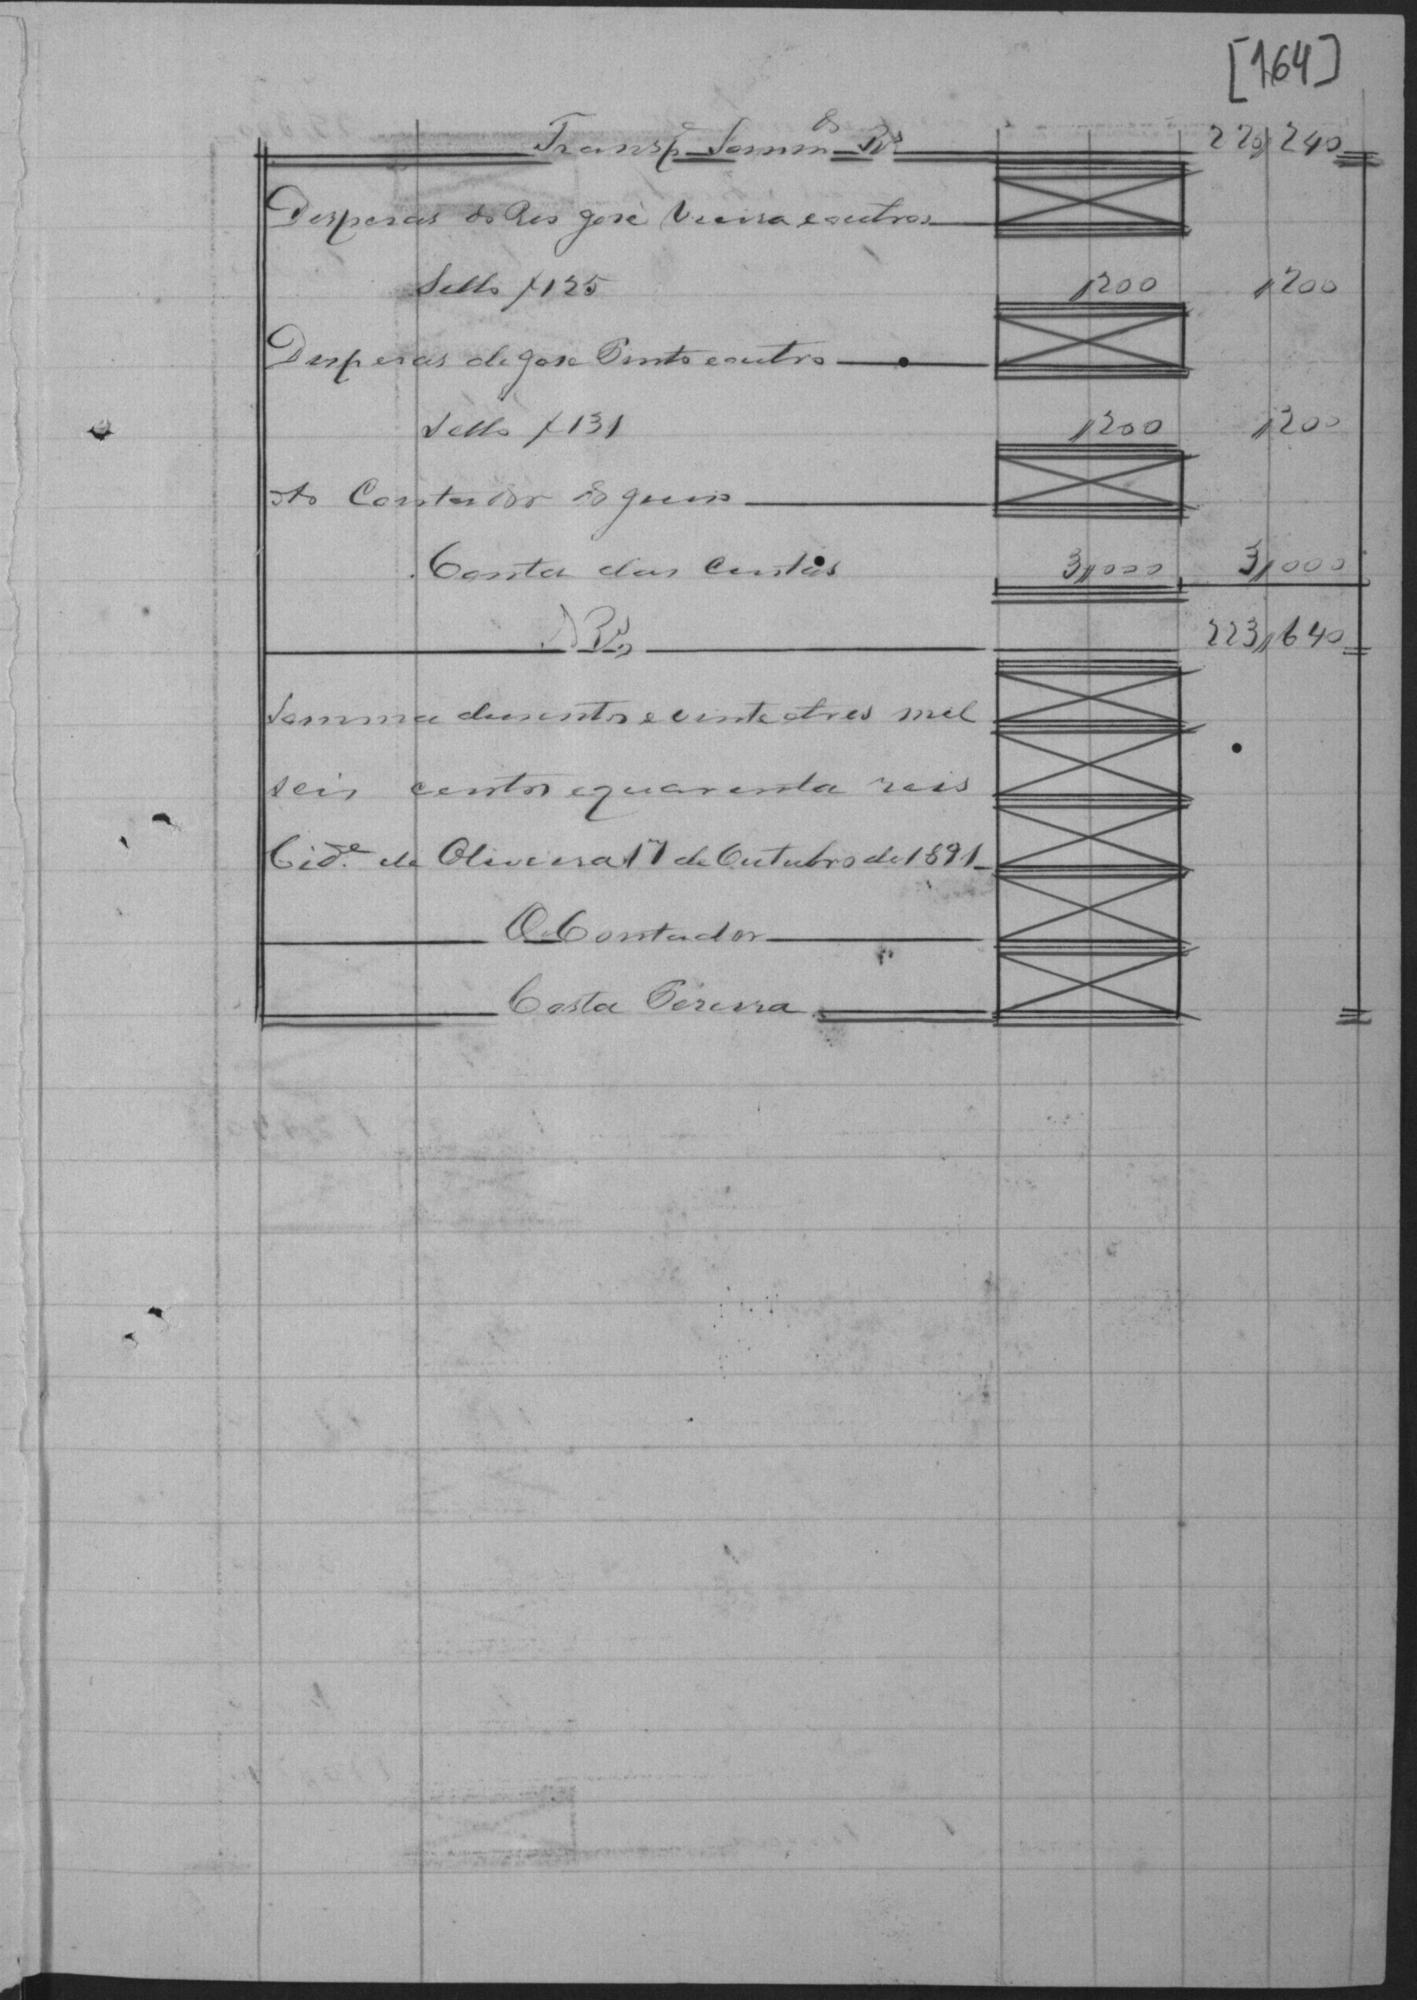 [164]
Transp.e Somm do Rs 220,240
Despesas do Reo José Vieira e outros
Sello f 125 ,200 ,200
Despesas de José Pinto e outro
Sello f 131 ,200 ,200
Ao Contador do Juizo
Conta das Custas 3,000 3,000
Rs 223,640
Somma dusentos e vinte e tres mil
seis centos e quarenta reis
Cid.e de Oliveira 17 de Outubro de 1891
O Contador
Costa Pereira